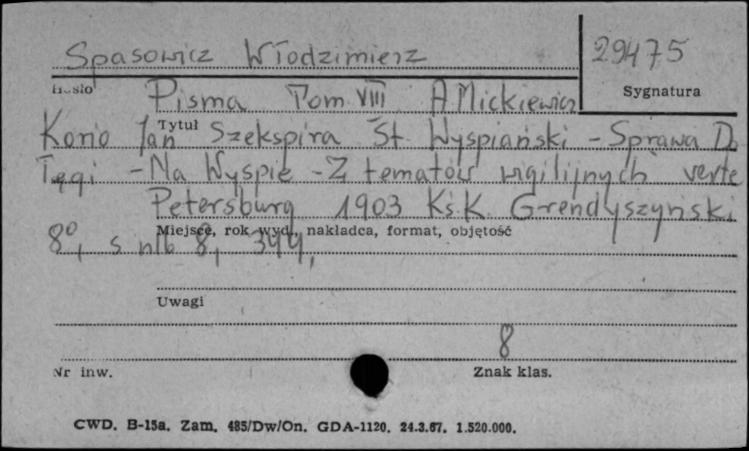 Spasowicz Włodzimierz
29475
Hasło
Sygnatura
Pisma Tom VIII A Mickiewicz
Tytuł
Konio Jan Szekspira St. Wyspiański - Sprawa D
Tęgi - Na Wyspie - Z tematów wigilijnych verte
Petersburg 1903 Ks. K. Grendyszyński
Miejsce, rok wyd., nakładca, format, objętość
8°, s nlb 8, 344,
Uwagi
8
Nr inw.
Znak klas.
CWD. B-15a. Zam. 485/Dw/On. GDA-1120. 24.3.67. 1.520.000.